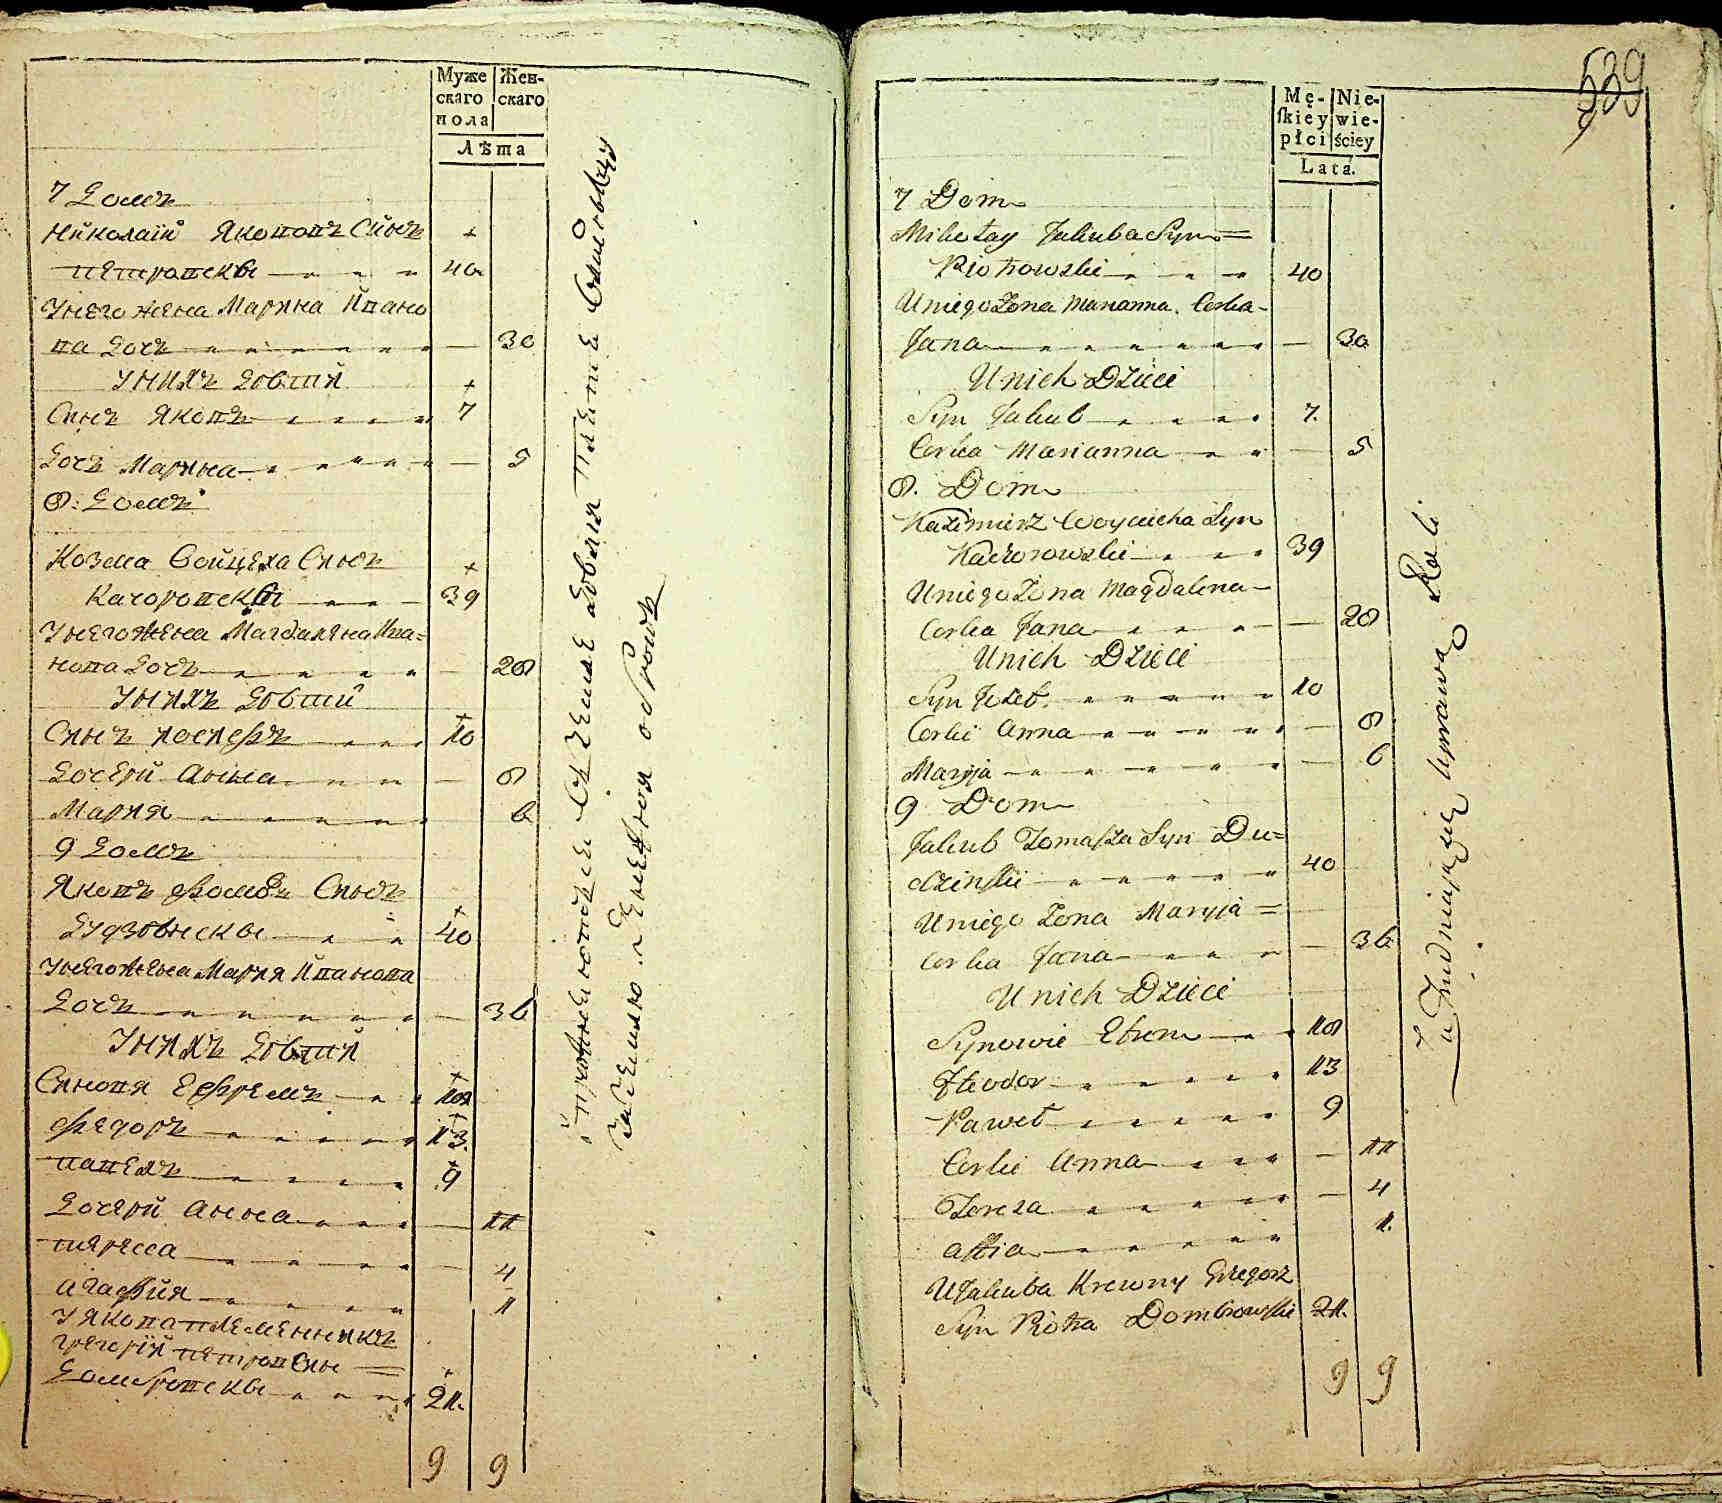 Муже Жен-
скаго скаго
пола
Лѣта
7 Домъ
Николай Якововъ Сынъ +
Петровскы 40
Унего жена Марина Ивано
ва Дочъ — 30
Унихъ Довтки +
Сынъ Яковъ 7
Дочъ Марына — 5
8: Домъ
Козма Войцеха Сынъ +
Качоровскы 39
Унего жена Магдалена Ива=
нова Дочъ — 28
Унихъ Довтки +
Сынъ Иосифъ 10
Дочери Анна — 8
Мария 6
9 Домъ
Яковъ Фомы Сынъ +
40
Унего жена Мария Иванова
Дочъ — 36
Унихъ Довтки +
Сынови Ефремъ 18
Федоръ + 13
Павелъ + 9
Дочери Анна — 11
Тересса — 4
Агафия 1
У Якова племенникъ
Григорий Петровъ Сынъ =
Домбровскы 21.
9 9
539
Mę- Nie-
ſkiey wie-
płci ściey
Lata.
7 Dom
Mikołay Jakuba Syn=
Piotrowski 40
Uniego Żona Marianna Corka-
Jana — 30
Unich Dzieci
Syn Jakub 7.
Corka Marianna — 5
8. Dom
Kazimierz Woyciecha Syn
Kaczorowski 39
Uniego Żona Magdalena-
Corka Jana — 28
Unich Dzieci
Syn Jozef 10
Corki Anna — 8
Maryja — 6
9 Dom
Jakub Tomaſza Syn Du=
dzinſki 40
Uniego Zona Maryia=
Corka Jana — 36
Unich Dzieci
Synowie Efrem 18
Fteodor 13
Paweł 9
Corki Anna — 11
Tereza — 4
1.
U Jakuba Krewny Grzegorz
Syn Piotra Dombrowſki 21.
9 9
Zatrudniaią się uprawą Roli